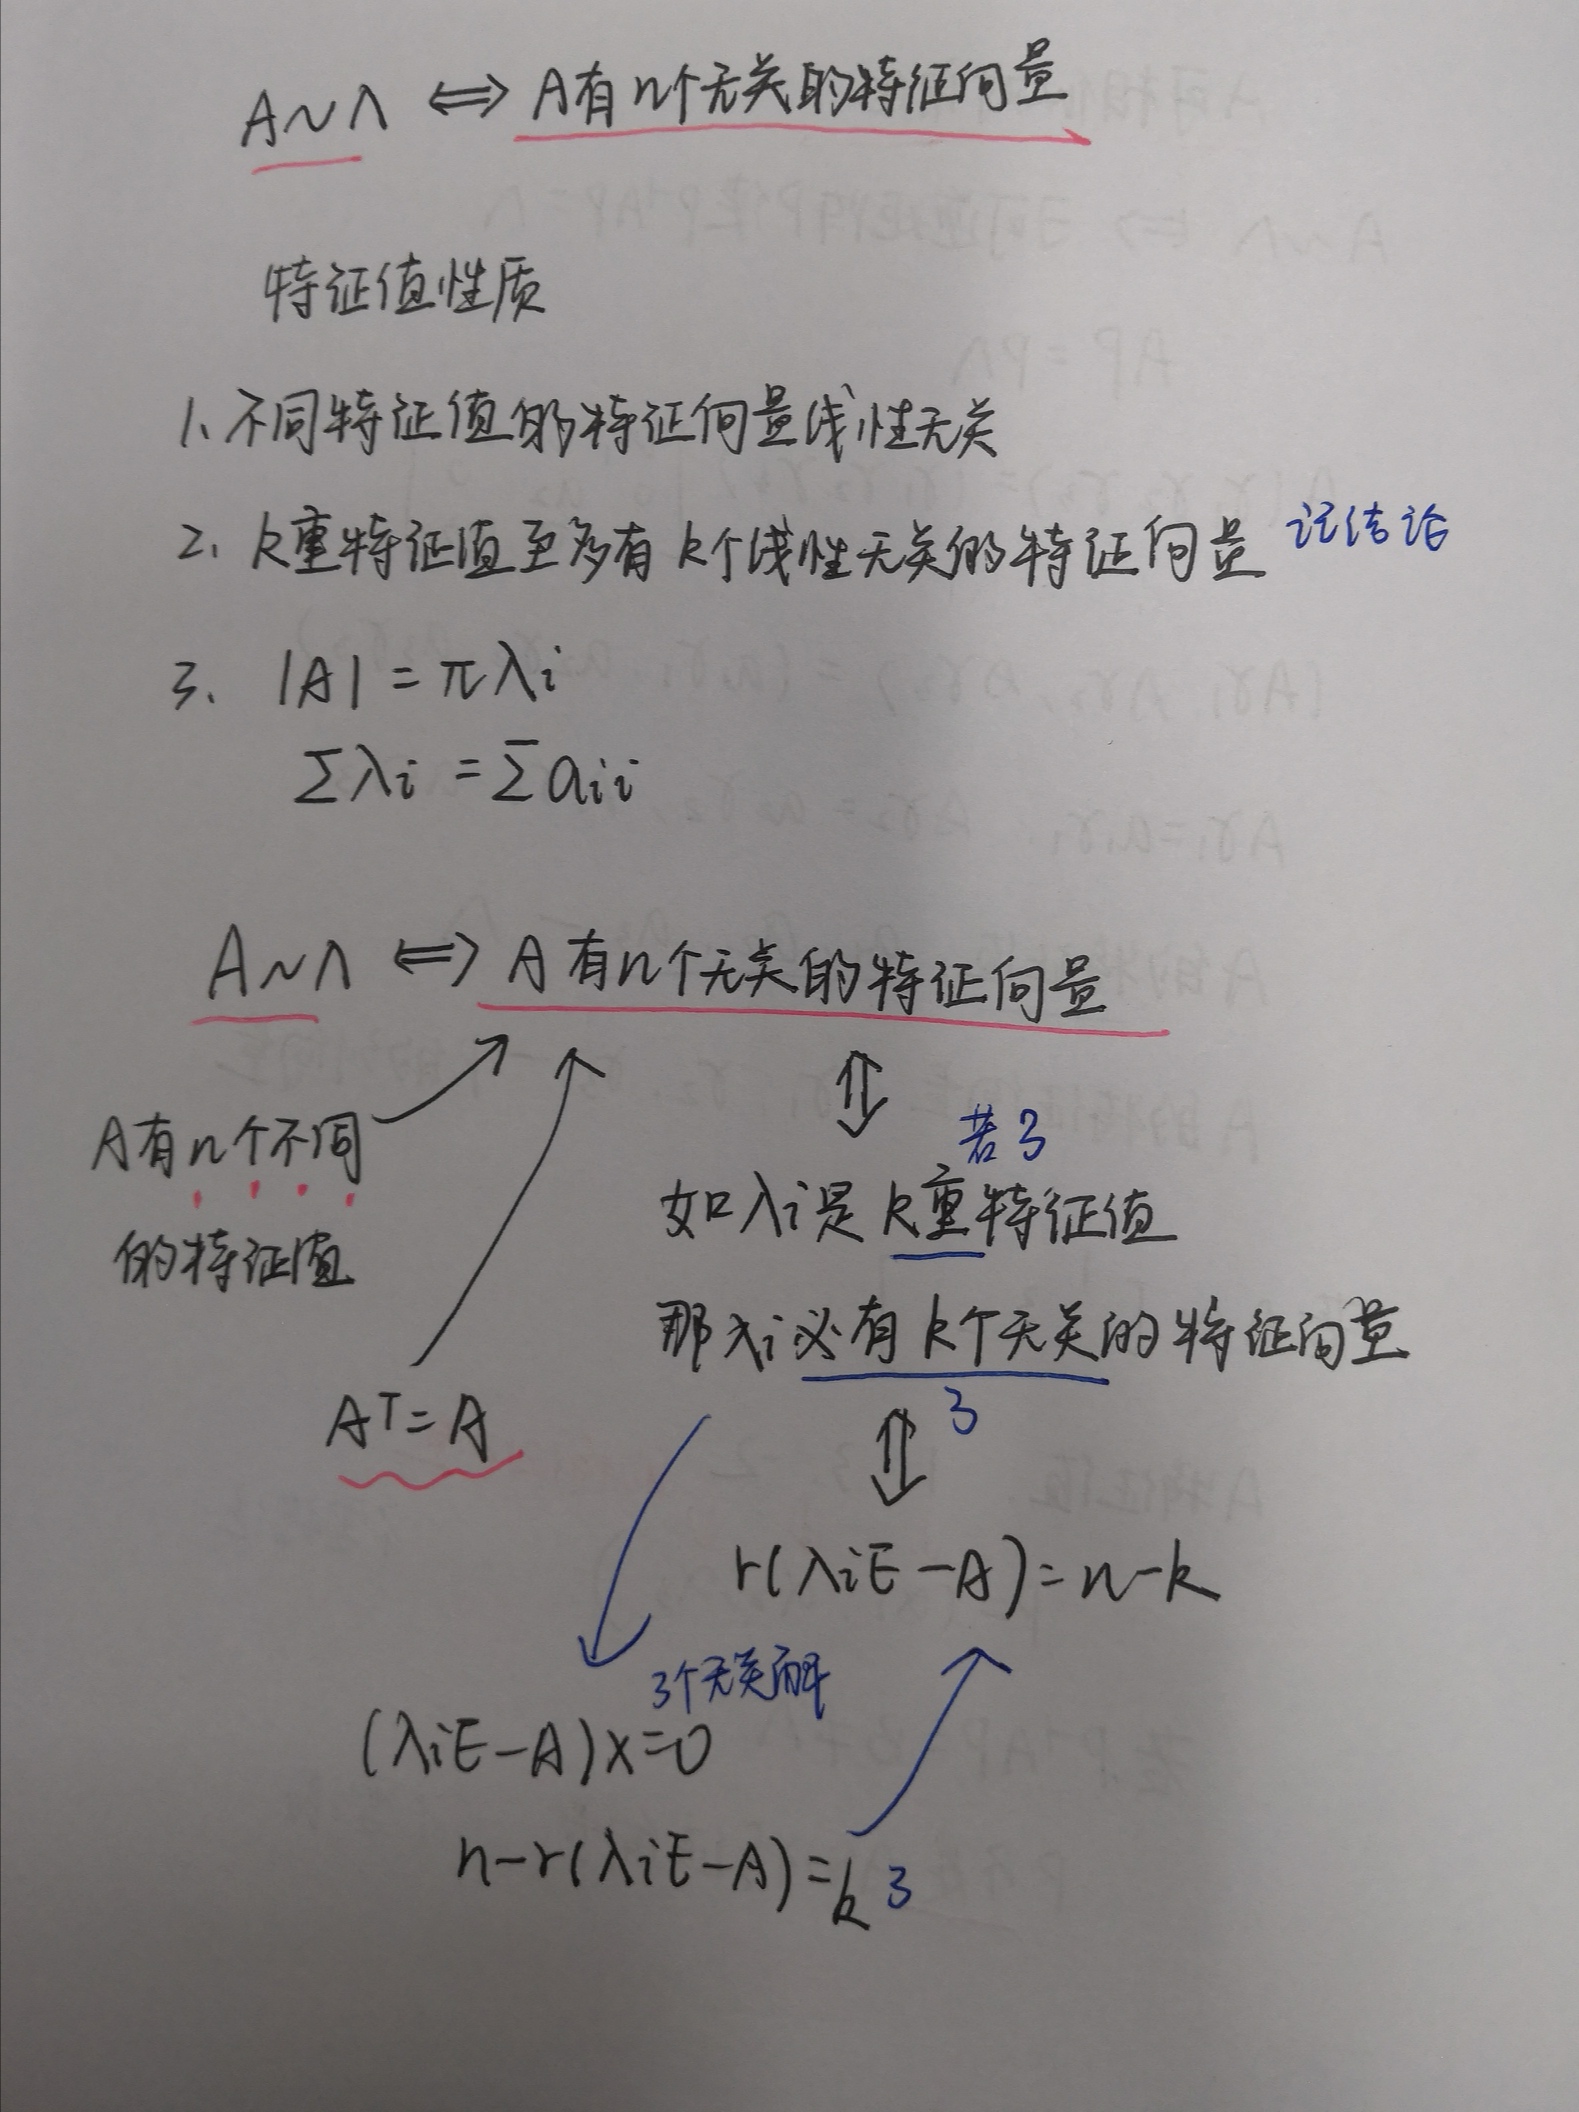 A~Λ ⇔ A有n个无关的特征向量
特征值性质
1. 不同特征值的特征向量线性无关
2. k重特征值至多有k个线性无关的特征向量 记结论
3. |A| = πλi
Σλi = Σaii
A~Λ ⇔ A有n个无关的特征向量
A有n个不同
的特征值
Aᵀ=A
⇕
若3
如λi是k重特征值
那λi必有k个无关的特征向量
3
⇕
r(λiE-A)=n-k
3个无关解
(λiE-A)x=0
n-r(λiE-A)=k 3